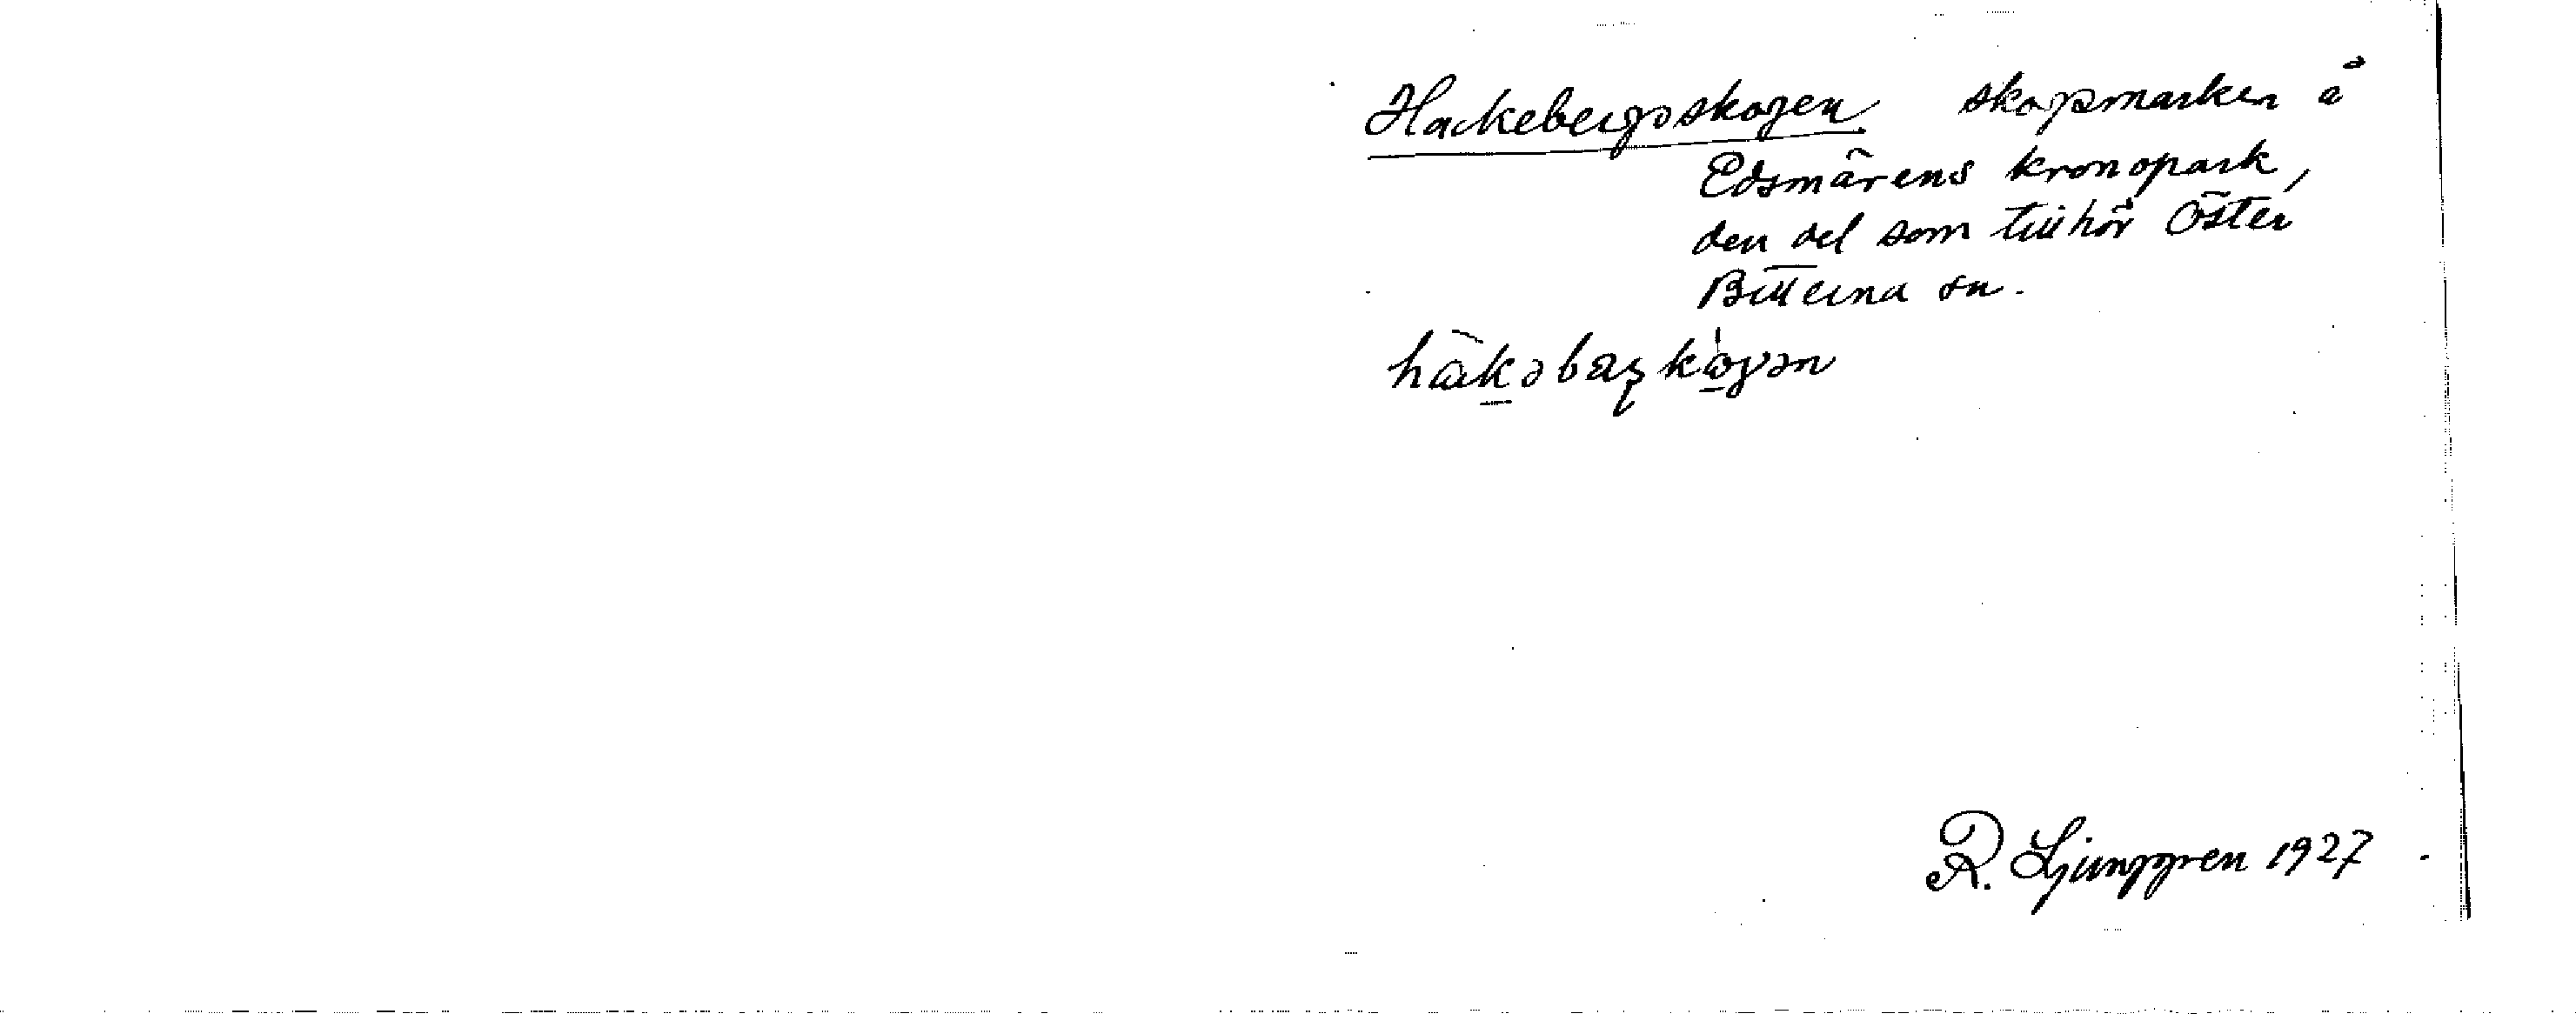 Hackebergsskogen skogsmarken å
Edsmärens kronopark,
den del som tillhör Öster
Bitterna sn.
R. Ljunggren 1927